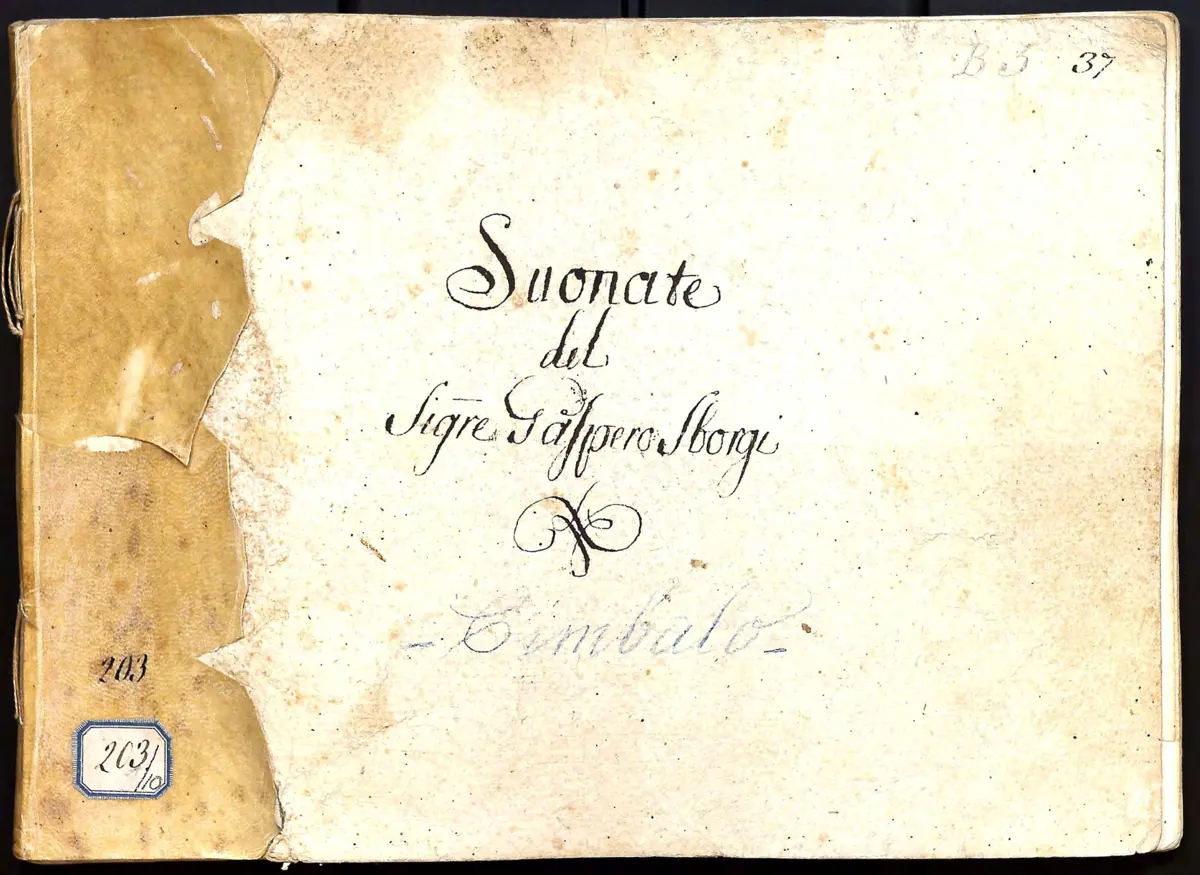 B 5 37
Suonate
del
Sigre Gaspero Sborgi
- Cimbalo -
203
203/10